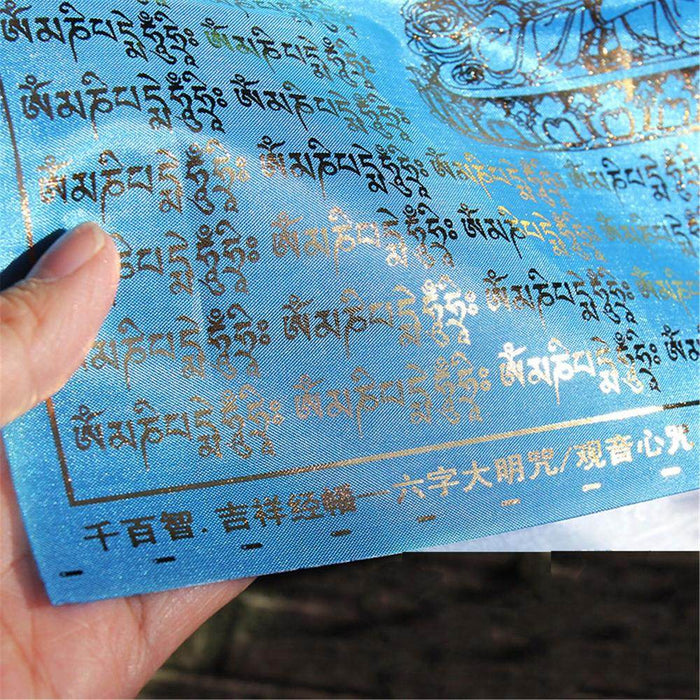 ཨོཾམཎིཔདྨེཧཱུྃཧྲཱིཿ ཨོཾམཎིཔདྨེཧཱུྃཧྲཱིཿ
ཨོཾམཎིཔདྨེཧཱུྃཧྲཱིཿ ཨོཾམཎིཔདྨེཧཱུྃཧྲཱིཿ
ཨོཾམཎིཔདྨེཧཱུྃཧྲཱིཿ ཨོཾམཎིཔདྨེཧཱུྃཧྲཱིཿ ཨོཾམཎིཔདྨེཧཱུྃཧྲཱིཿ ཨོཾམཎིཔདྨེཧཱུྃ
མཎིཔདྨེཧཱུྃཧྲཱིཿ ཨོཾམཎིཔདྨེཧཱུྃཧྲཱིཿ ཨོཾམཎིཔདྨེཧཱུྃཧྲཱིཿ ཨོཾམཎིཔདྨེ
མཎིཔདྨེཧཱུྃཧྲཱིཿ ཨོཾམཎིཔདྨེཧཱུྃཧྲཱིཿ ཨོཾམཎིཔདྨེཧཱུྃཧྲཱིཿ ཨོཾམཎི
ཨོཾམཎིཔདྨེཧཱུྃཧྲཱིཿ ཨོཾམཎིཔདྨེཧཱུྃཧྲཱིཿ ཨོཾམཎིཔདྨེཧཱུྃཧྲཱིཿ ཨོཾམ
千百智.吉祥经幡—六字大明咒/观音心咒